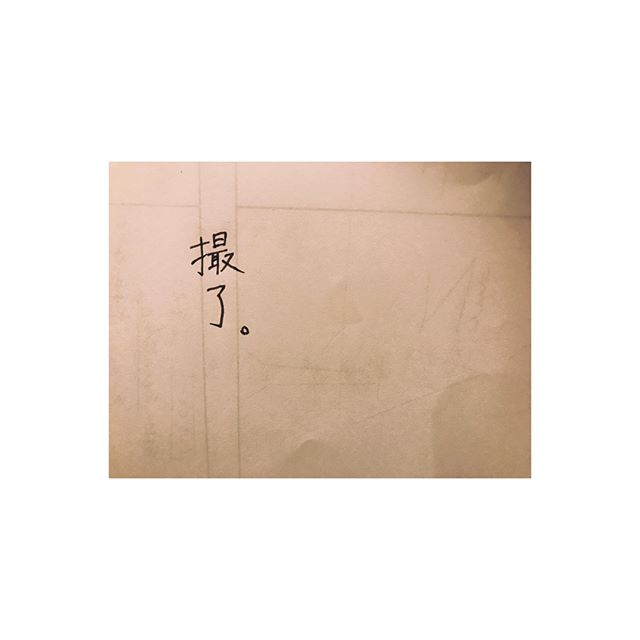 撮了。